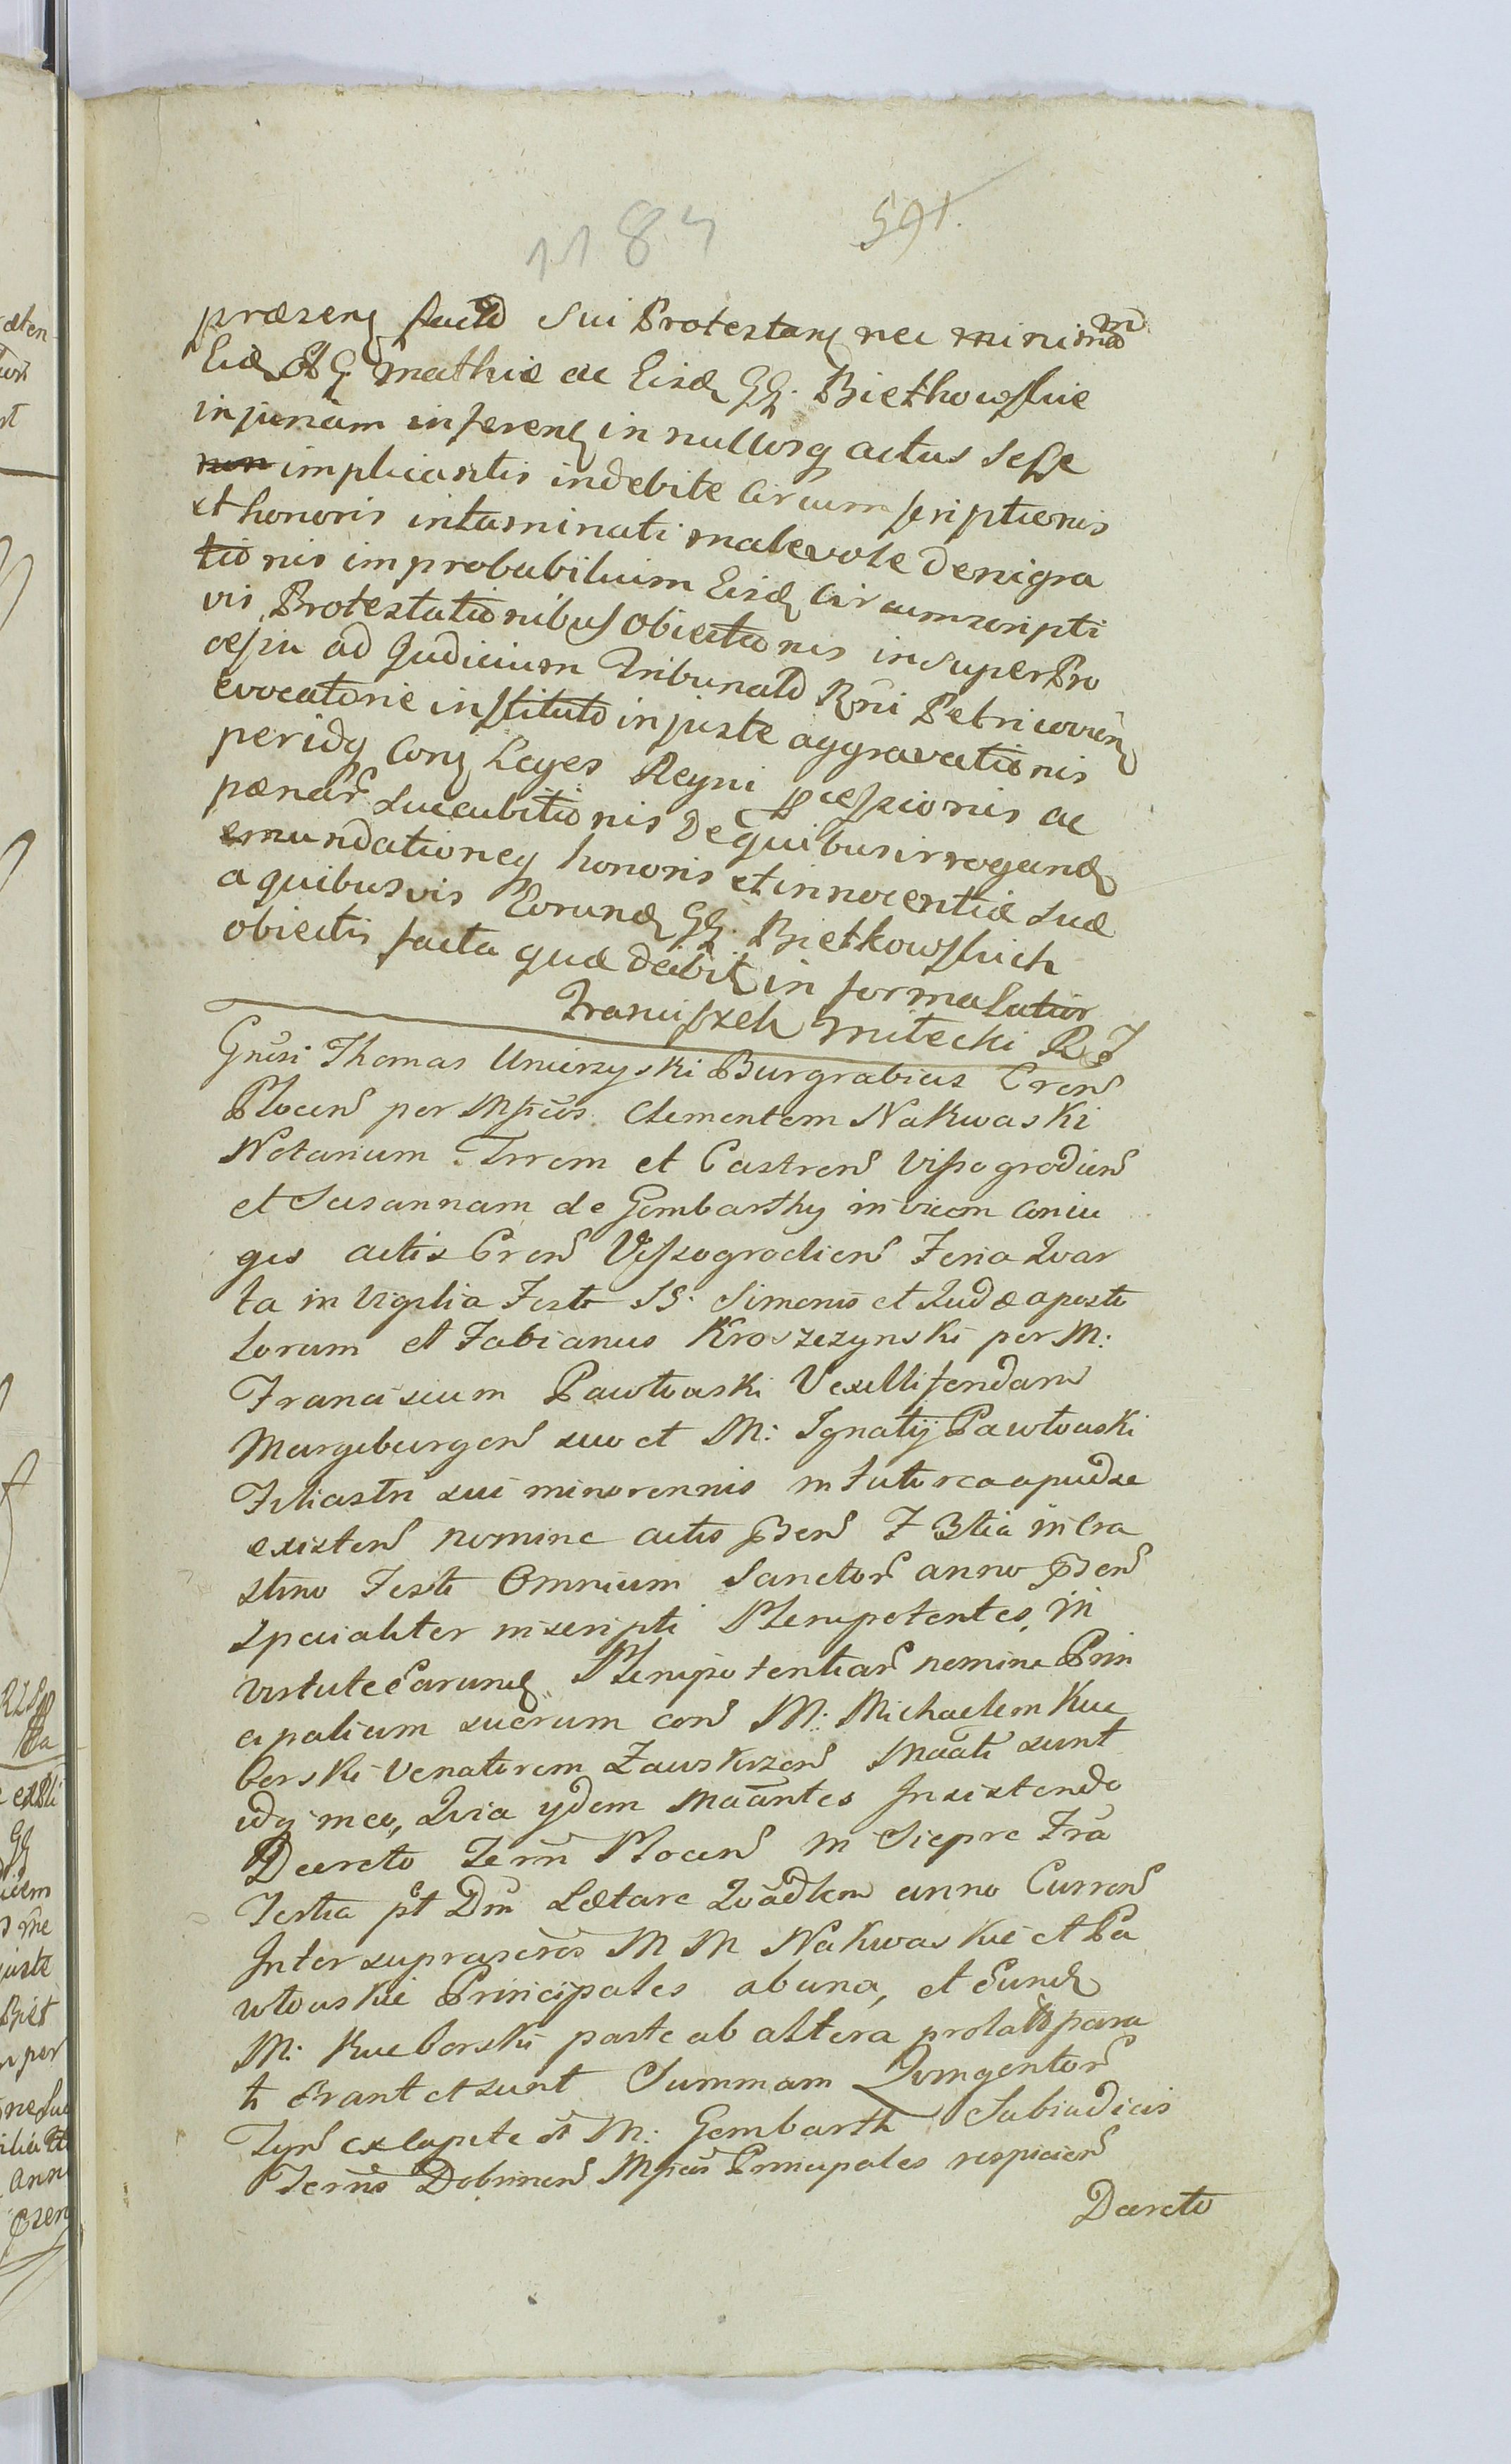 1184 591.
præzenỹ facto sui Protestanỹ nec minimam
Eidẽ G Mathiæ ac Eisdẽ GG. Biethowskie
injuriam inferenỹ in nullosq̃ actus sese
non implicantis indebite Circumscriptionis
et honoris intaminati malevole denigra
tionis improbabilium Eisdẽ Circumscripti
vis Protestationibus obiectionis insuper Pro
cessu ad Judicium Tribunalo Rgni Petricovienỹ
evocatorie instituto injuste aggravationis
peridq̃ Conỹ Leges Regni pcessionis ac
pænar̃ succubitionis De quibus irrogandẽ
emundationeq̃ honoris et innocentiæ suæ
a quibusvis Eorundẽ GG. Bietkowskich
obiectis facta quæ debitẽ in forma latior
Franciszek Miłecki R J
Gnũsi Thomas Umierzyski Burgrabius Cren̄
Plocen̄ per Mf̃cos. Clementem Nakwaski
Notarium Trrem et Castren̄ Vissogrodien̄
et Susannam de Gembarthy invicem Coniu
ges actis Cren̄ Vissogrodien̄ Feria Quar
ta in Vigilia Festi SS. Simonis et Judæ aposto
lorum et Fabianus Kroszczynski per M:
Franciscum Pawłowski Vexilliferidam
Margeburgen̄ suo et M: Ignatij Pawłowski
Filiastri sui minorennis in Tutorea apud se
existen̄ nomine actis ꝑsen̄ F 3tia in Cra
stino Festi Omnium Sanctor̃ anno ꝑsen̄
specialiter inscripti Plenipotentes, in
virtute Earundẽ Plenipotentiar̃ nomine Prin
cipalium suorum con̄ M: Michaelem Kuc
borski Venatorem Zawskrzen̄ Maãti sunt
idq̃ ideo, Quia ydem Maãntes Insistendo
Decreto Terrñ Plocen̄ in Sieprc Fra
Tertia pt Dm̃ Lætare Quãdlem anno Curren̄
Inter suprascros M M Nakwaskie et Pa
włowskie Principales ab una, et Eundẽ
M: Kucborski parte ab altera prolato para
ti Erant et sunt Summam Quingentor̃
Tyn̄ ex Capite ol M: Gembarth Subiudicis
Terrñs Dobrinen̄ Mf̃cos Principales respicien̄
Decreto